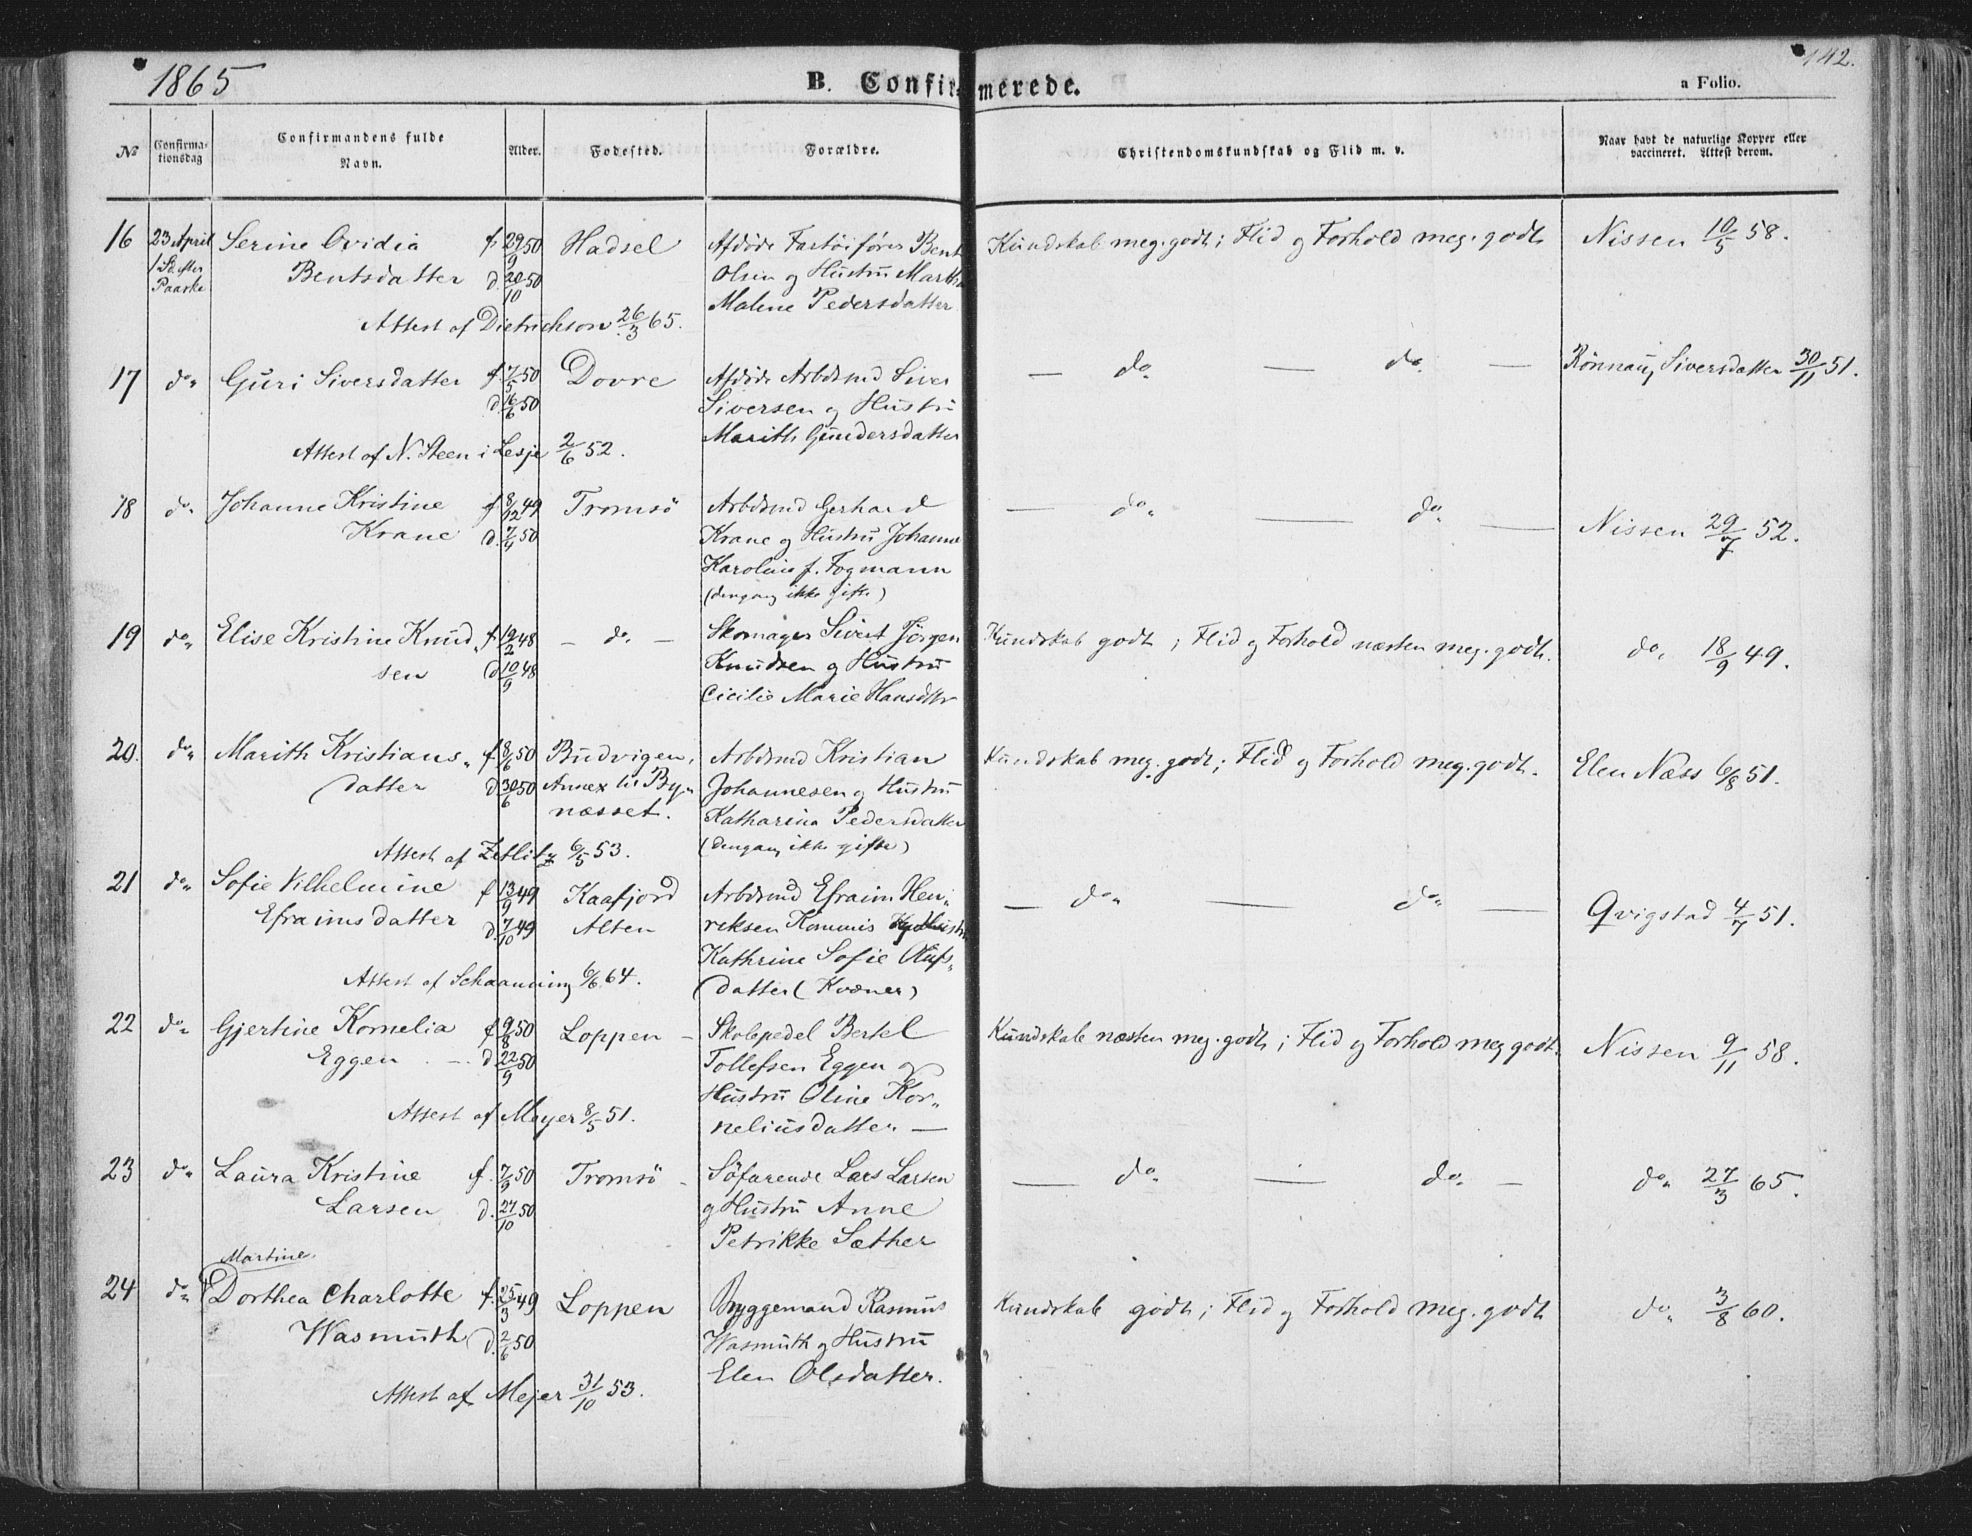 1865
B. Confirmerede.
142.
a Folio.
№
Confirma-
tionsdag
Confirmandens fulde
Navn.
Alder.
Fødested.
Forældre.
Christendomskundskab og Flid m. v.
Naar havt de naturlige Kopper eller
vaccineret. Attest derom.
16 23 April Serine Ovidia f. 29/9 50 Hadsel Afdøde Bent Kundskab meg. godt; Flid og Forhold meg. godt Nissen 10/5 58.
1 Sd. efter Paaske Bentsdatter d. 20/10 50 Olsen og Hustru Martha
Malene Pedersdatter
Attest af Dietrichson 26/3 65.
17 do Guri Siversdatter f. 7/5 50 Dovre Afdøde Arbdsmd Siver — do — do — Rönnaug Siversdatter 30/11 51.
d. 16/6 50 Siversen og Hustru
Marith Gundersdatter
Attest af N. Steen i Lesje 2/6 52.
18 do Johanne Kristine f. 8/12 49 Tromsö Arbdsmd Gerhard — do — do — Nissen 29/7 52.
Krane d. 7/4 50 Krane og Hustru Johanne
Karoline f. Fogmann
(dengang ikke gifte)
19 do Elise Kristine Knud f. 19/2 48 — do — Skomager Sivert Jörgen Kundskab godt; Flid og Forhold næsten meg. godt. do 18/9 49.
sen d. 10/9 48 Knudsen og Hustru
Cicilie Marie Hansdtr
20. do Marith Kristians- f. 8/6 50 Budvigen, Arbdsmd Kristian Kundskab meg. godt; Flid og Forhold meg. godt. Elen Næss 6/8 51.
datter d. 30/6 50 Annex til By- Johannesen og Hustru
næsset. Katharina Pedersdatter
(dengang ikke gifte)
Attest af Zetlitz 6/5 53.
21 do Sofie Vilhelmine f. 13/9 49 Kaafjord Arbdsmd Efraim Hen- — do — do — Qvigstad 4/7 51.
Efraimsdatter d. 7/10 49 Alten reksen Kommis og Hustru
Kathrine Sofie Olufs-
datter (Kvæner)
Attest af Schaanning 6/6 64.
22 do Gjertine Kornelia f. 9/8 50 Loppen — Skolepedel Bertel Kundskab næsten meg. godt; Flid og Forhold meg godt. Nissen 9/11 58.
Eggen d. 22/9 50 Tollefsen Eggen og
Hustru Oline Kor-
neliusdatter —
Attest af Meyer 8/5 51.
23 do Laura Kristine f. 7/9 50 Tromsö — Söfarende Lars Larsen — do — do — do 27/3 65.
Larsen d. 27/10 50 og Hustru Anne
Petrikke Sæther
Martine
24 do Dorthea Charlotte f. 25/3 49 Loppen Bryggemand Rasmus Kundskab godt; Flid og Forhold meg. godt do 3/8 60.
Wasmuth d. 2/6 50 Wasmuth og Hustru
Elen Olsdatter.
Attest af Mejer 31/10 53.